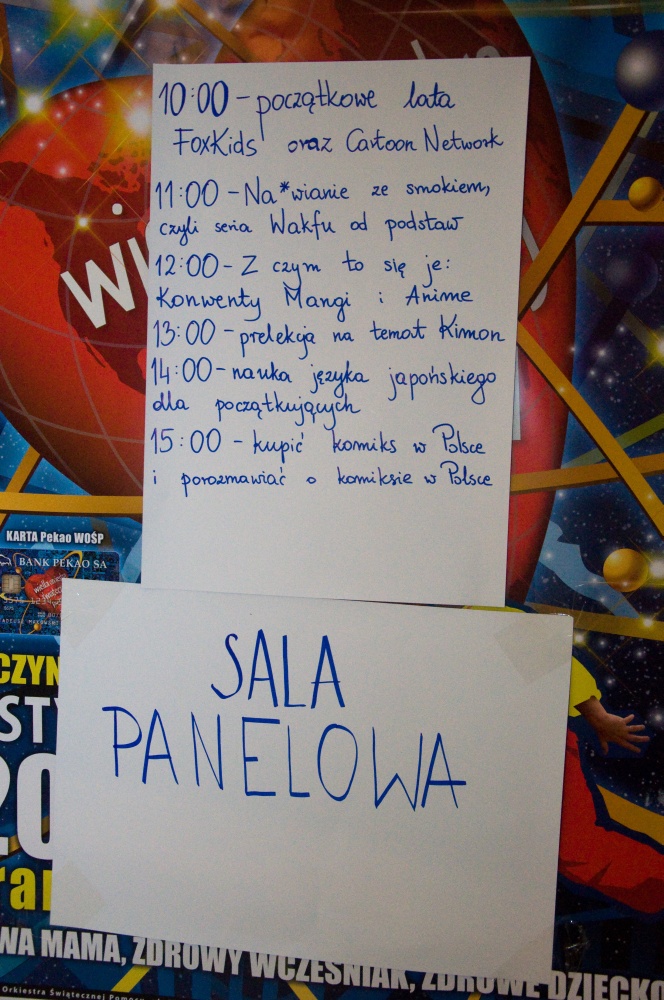 10:00 - początkowe lata
FoxKids oraz Cartoon Network
11:00 - Na*wianie ze smokiem,
czyli seria Wakfu od podstaw
12:00 - Z czym to się je:
Konwenty Mangi i Anime
13:00 - prelekcja na temat Kimon
14:00 - nauka języka japońskiego
dla początkujących
15:00 - kupić komiks w Polsce
i porozmawiać o komiksie w Polsce
KARTA Pekao WOŚP
BANK PEKAO SA
SALA
PANELOWA
WA MAMA, ZDROWY WCZEŚNIAK, ZDROWE DZIECKO
Orkiestra Świątecznej Pomocy